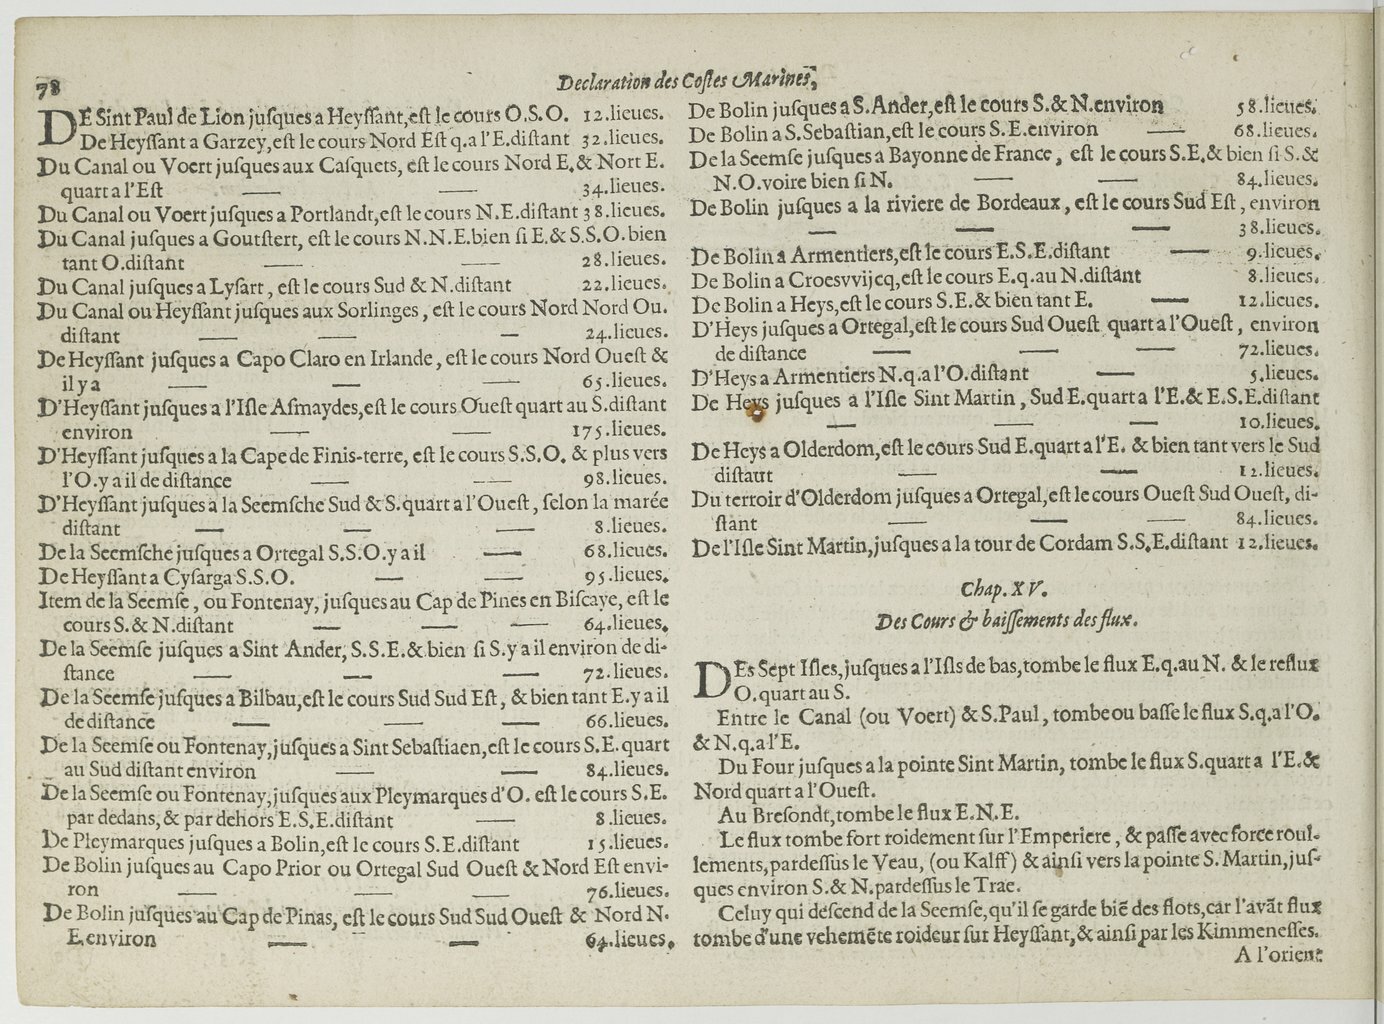 78
Declaration des Coſtes Marines,
DE Sint Paul de Lion juſques a Heyſſant, eſt le cours O.S.O. 12.lieues.
De Heyſſant a Garzey, eſt le cours Nord Eſt q.a l'E.diſtant 32.lieues.
Du Canal ou Voert juſques aux Caſquets, eſt le cours Nord E.& Nort E.
quart a l'Eſt — — 34.lieues.
Du Canal ou Voert juſques a Portlandt, eſt le cours N.E.diſtant 38.lieues.
Du Canal juſques a Goutſtert, eſt le cours N.N.E.bien ſi E.& S.S.O.bien
tant O.diſtant — — 28.lieues.
Du Canal juſques a Lyſart, eſt le cours Sud & N.diſtant 22.lieues.
Du Canal ou Heyſſant juſques aux Sorlinges, eſt le cours Nord Nord Ou.
diſtant — — — 24.lieues.
De Heyſſant juſques a Capo Claro en Irlande, eſt le cours Nord Oueſt &
il y a — — — 65.lieues.
D'Heyſſant juſques a l'Iſle Aſmaydes, eſt le cours Oueſt quart au S.diſtant
environ — — 175.lieues.
D'Heyſſant juſques a la Cape de Finis-terre, eſt le cours S.S.O. & plus vers
l'O.y a il de diſtance — — 98.lieues.
D'Heyſſant juſques a la Seemſche Sud & S.quart a l'Oueſt, ſelon la marée
diſtant — — — 8.lieues.
De la Seemſche juſques a Ortegal S.S.O.y a il — 68.lieues.
De Heyſſant a Cyſarga S.S.O. — — 95.lieues.
Item de la Seemſe, ou Fontenay, juſques au Cap de Pines en Biſcaye, eſt le
cours S.& N.diſtant — — — 64.lieues.
De la Seemſe juſques a Sint Ander, S.S.E.& bien ſi S.y a il environ de di-
ſtance — — — 72.lieues.
De la Seemſe juſques a Bilbau, eſt le cours Sud Sud Eſt, & bien tant E.y a il
de diſtance — — — 66.lieues.
De la Seemſe ou Fontenay, juſques a Sint Sebaſtiaen, eſt le cours S.E.quart
au Sud diſtant environ — — 84.lieues.
De la Seemſe ou Fontenay, juſques aux Pleymarques d'O. eſt le cours S.E.
par dedans, & par dehors E.S.E.diſtant — 8.lieues.
De Pleymarques juſques a Bolin, eſt le cours S.E.diſtant 15.lieues.
De Bolin juſques au Capo Prior ou Ortegal Sud Oueſt & Nord Eſt envi-
ron — — — 76.lieues.
De Bolin juſques au Cap de Pinas, eſt le cours Sud Sud Oueſt & Nord N.
E.environ — — 64.lieues.
De Bolin juſques a S.Ander, eſt le cours S.& N.environ 58.lieues.
De Bolin a S.Sebaſtian, eſt le cours S.E.environ — 68.lieues.
De la Seemſe juſques a Bayonne de France, eſt le cours S.E.& bien ſi S.&
N.O.voire bien ſi N. — — 84.lieues.
De Bolin juſques a la riviere de Bordeaux, eſt le cours Sud Eſt, environ
— — — 38.lieues.
De Bolin a Armentiers, eſt le cours E.S.E.diſtant — 9.lieues.
De Bolin a Croesvvijcq, eſt le cours E.q.au N.diſtant 8.lieues.
De Bolin a Heys, eſt le cours S.E.& bien tant E. — 12.lieues.
D'Heys juſques a Ortegal, eſt le cours Sud Oueſt quart a l'Oueſt, environ
de diſtance — — — 72.lieues.
D'Heys a Armentiers N.q.a l'O.diſtant — 5.lieues.
De Heys juſques a l'Iſle Sint Martin, Sud E.quart a l'E.& E.S.E.diſtant
— — — 10.lieues.
De Heys a Olderdom, eſt le cours Sud E.quart a l'E. & bien tant vers le Sud
diſtaut — — 12.lieues.
Du terroir d'Olderdom juſques a Ortegal, eſt le cours Oueſt Sud Oueſt, di-
ſtant — — — 84.lieues.
De l'Iſle Sint Martin, juſques a la tour de Cordam S.S.E.diſtant 12.lieues.
Chap. XV.
Des Cours & baiſſements des flux.
DEs Sept Iſles, juſques a l'Iſls de bas, tombe le flux E.q.au N. & le reflux
O.quart au S.
Entre le Canal (ou Voert) & S.Paul, tombe ou baſſe le flux S.q.a l'O.
& N.q.a l'E.
Du Four juſques a la pointe Sint Martin, tombe le flux S.quart a l'E.&
Nord quart a l'Oueſt.
Au Breſondt, tombe le flux E.N.E.
Le flux tombe fort roidement ſur l'Emperiere, & paſſe avec force roul-
lements, pardeſſus le Veau, (ou Kalff) & ainſi vers la pointe S.Martin, juſ-
ques environ S.& N.pardeſſus le Trae.
Celuy qui deſcend de la Seemſe, qu'il ſe garde biē des flots, car l'avāt flux
tombe d'une vehemēte roideur ſur Heyſſant, & ainſi par les Kimmeneſſes.
A l'orient